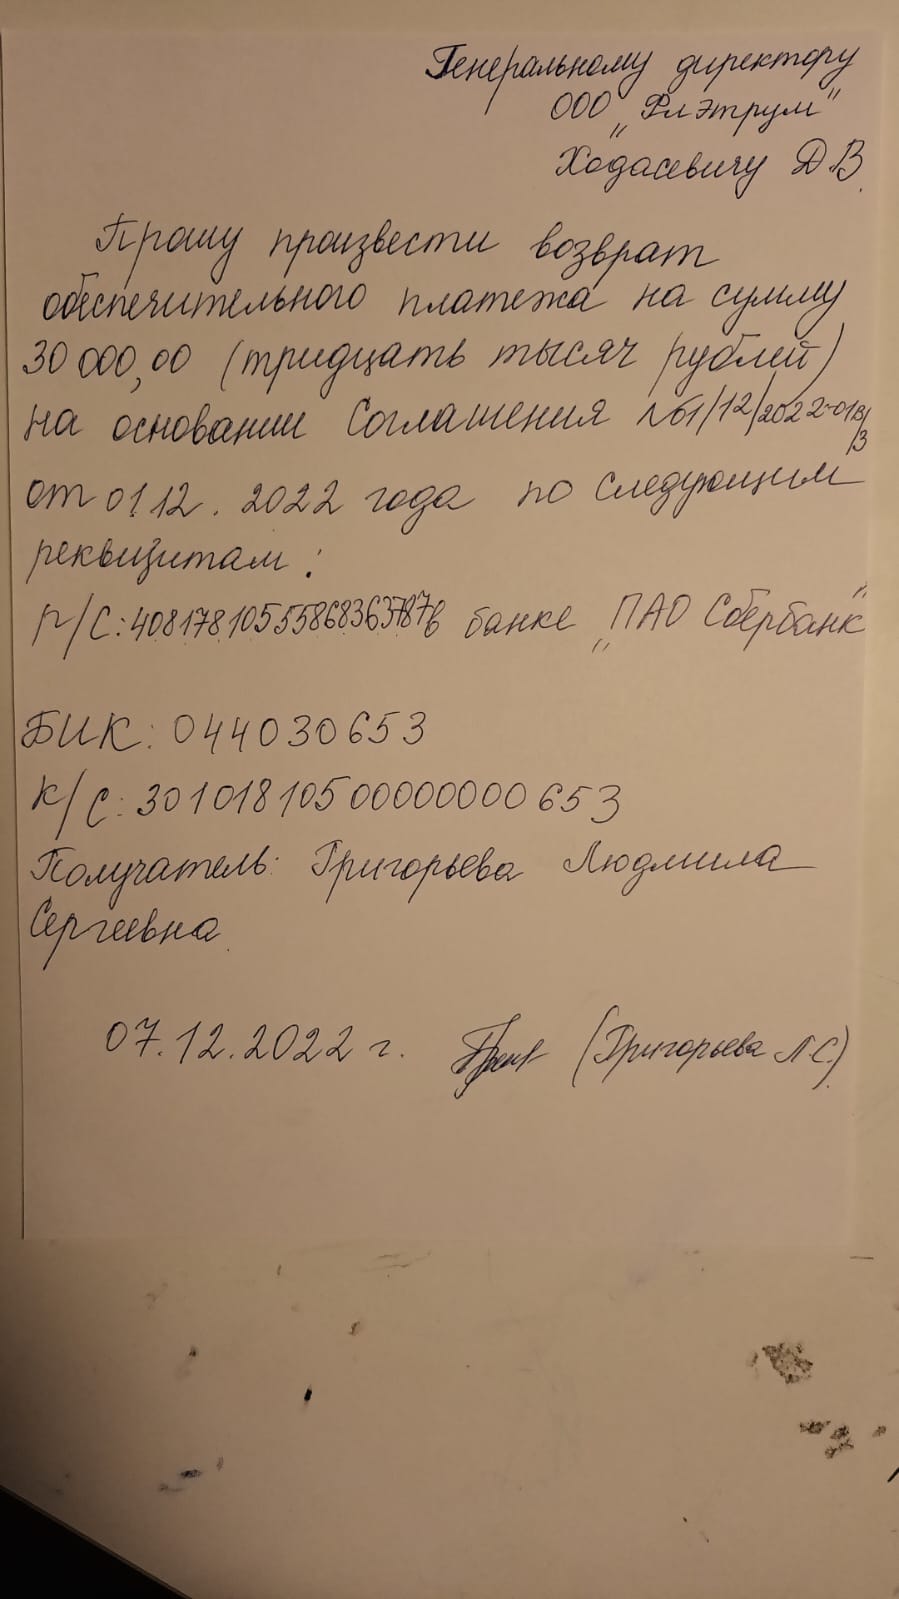 Генеральному директору
ООО „РлЭтрум"
Ходасевичу Д В.
Прошу произвести возврат
обеспечительного платежа на сумму
30 000,00 (тридцать тысяч рублей)
на основании Соглашения
от 01.12.2022 года по следующим
реквизитам:
р/с: в банке „ПАО Сбербанк"
БИК: 044030653
К/С: 30101810500000000653
Получатель: Григорьева Людмила
Сергеевна.
07.12.2022 г. (Григорьева Л С.)